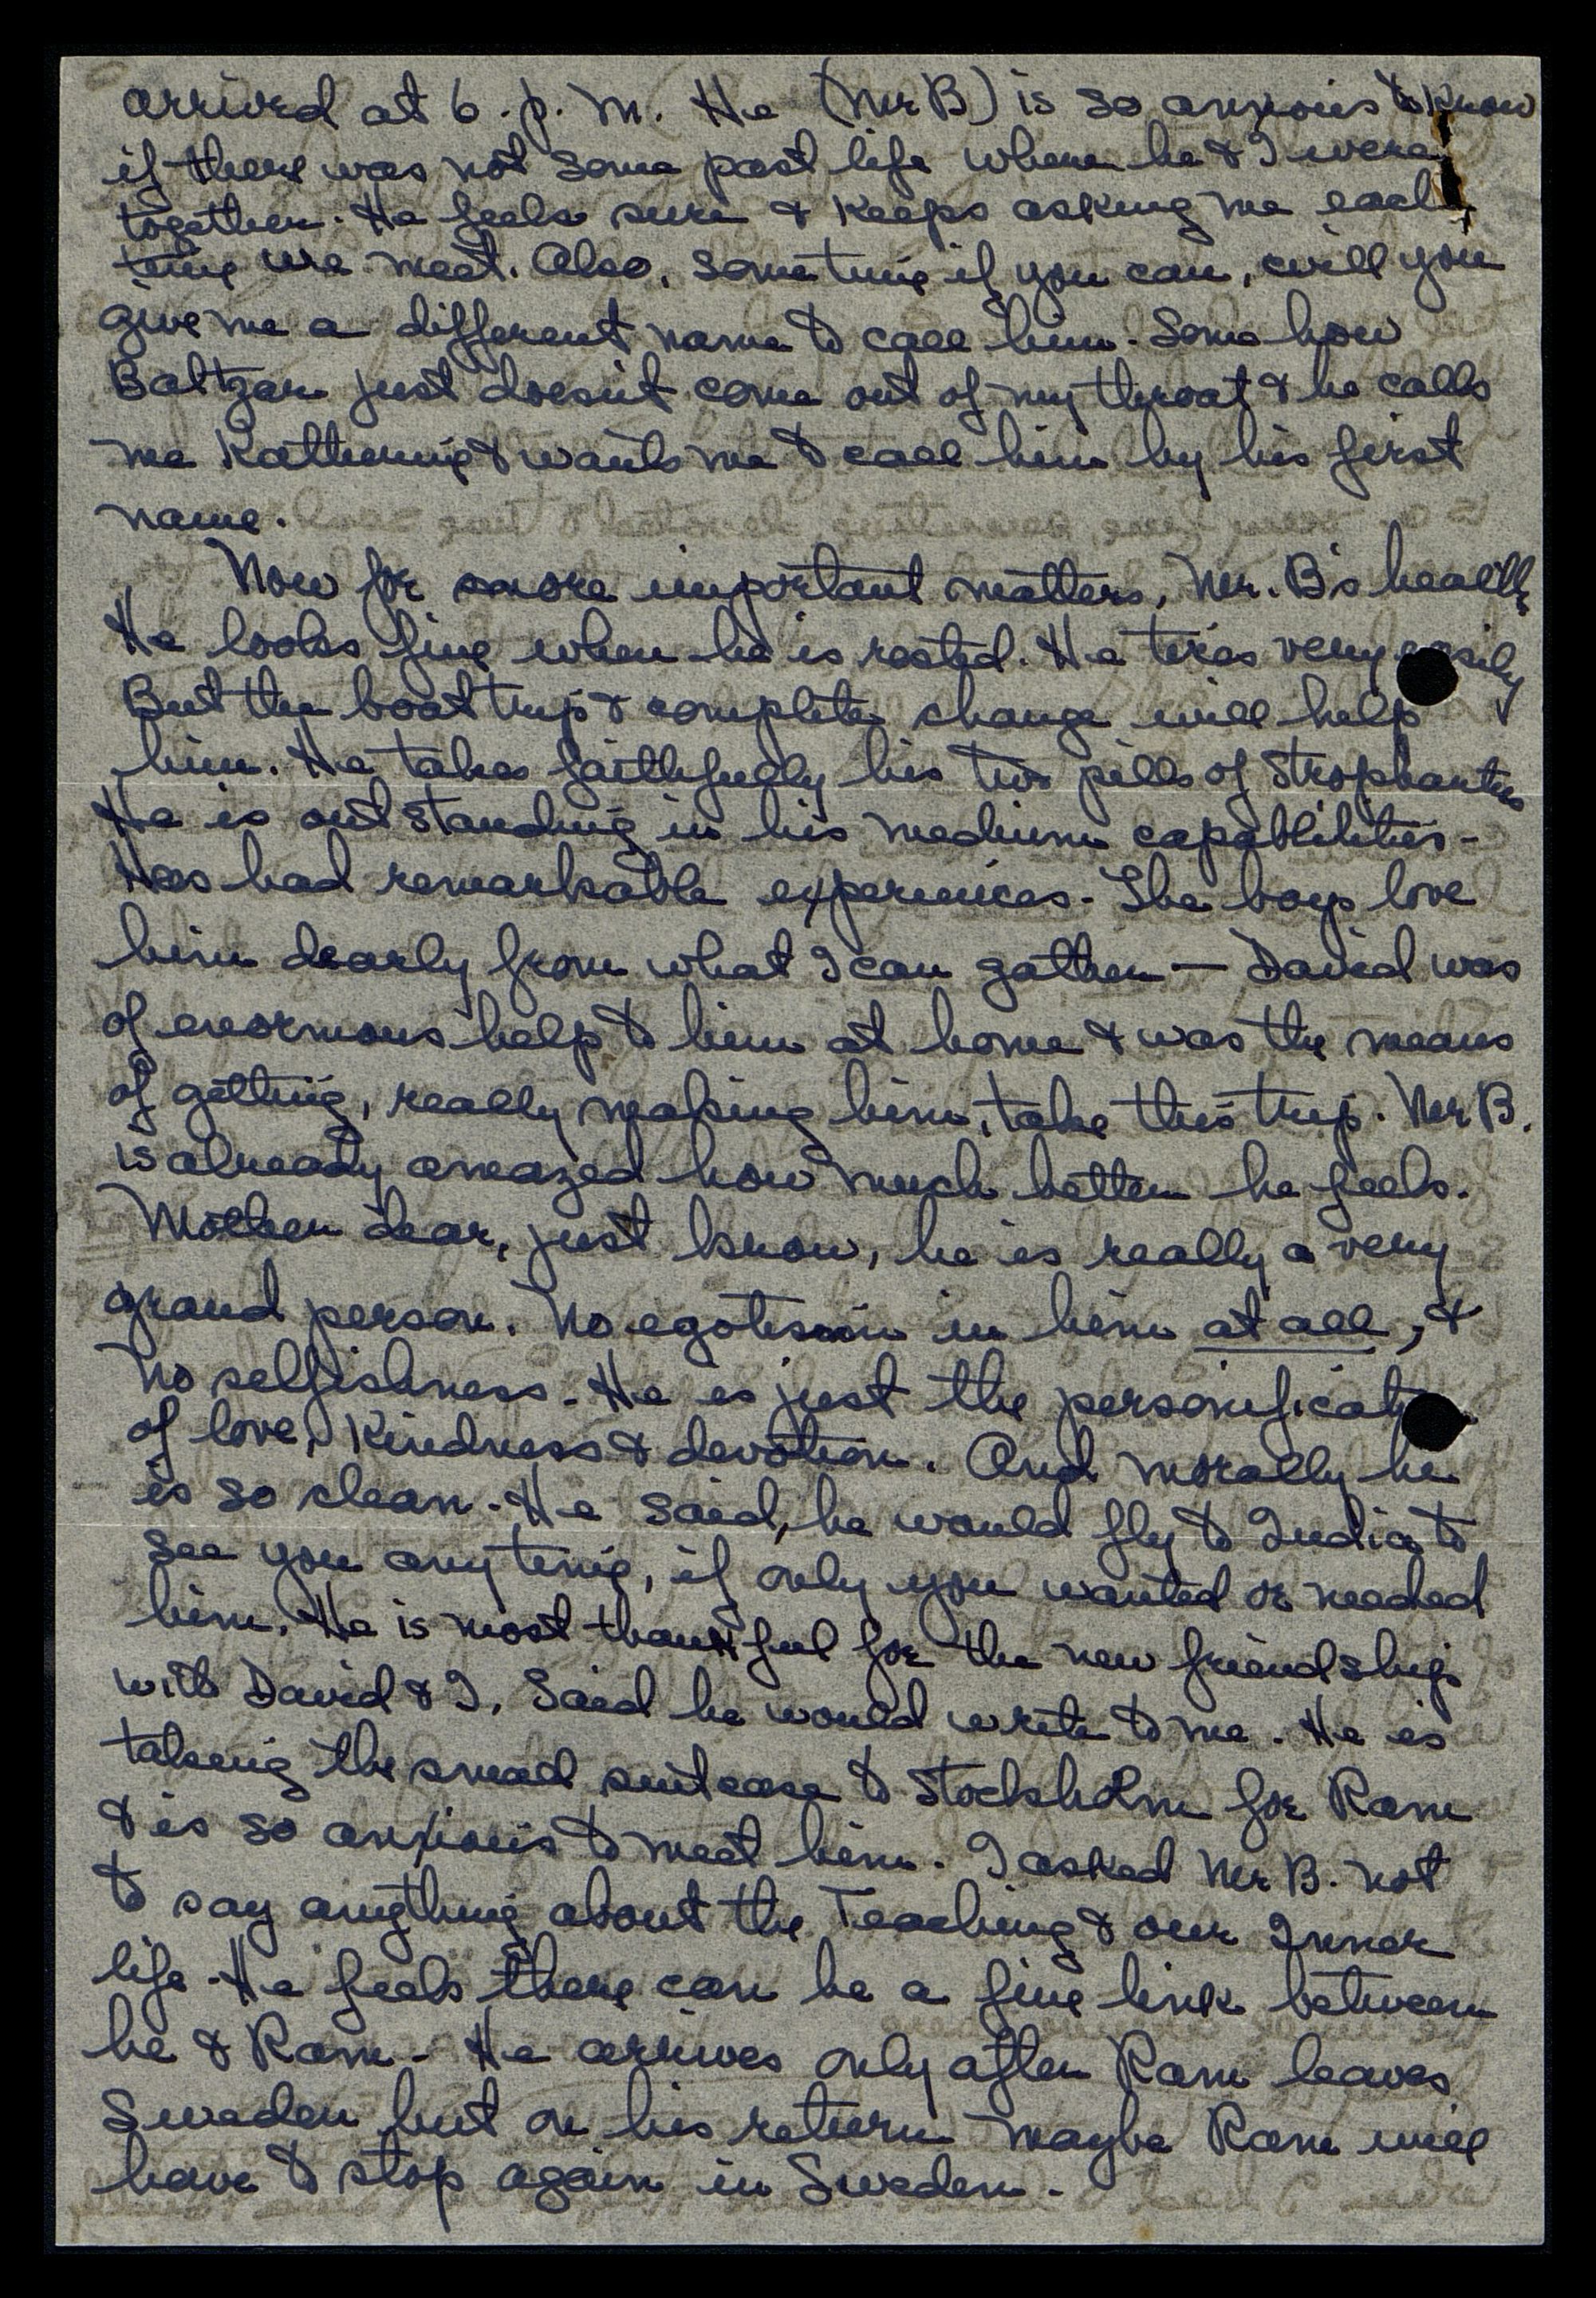 arrived at 6. p. M. He (Mr B) is so anxious to know
if there was not some past life where he & I were
together. He feels sure & keeps asking me each
time we meet. Also, sometime if you can, will you
give me a different name to call him. Some how
Baltzar just doesn't come out of my throat & he calls
me Katherine & wants me to call him by his first
name.
Now for more important matters, Mr. B's health,
He looks fine when he is rested. He tires very easily
But the boat trip & complete change will help
him. He takes faithfully his two pills of Strophantus
He is outstanding in his medium capabilities -
Has had remarkable experiences - The boys love
him dearly from what I can gather — David was
of enormous help to him at home & was the means
of getting, really making him, take this trip. Mr B.
is already amazed how much better he feels.
Mother dear, just know, he is really a very
grand person. No egotism in him at all, &
no selfishness. He is just the personificat
of love, Kindness & devotion. And morally he
is so clean. He said, he would fly to India to
see you any time, if only you wanted or needed
him. He is most thankful for the new friendship
with David & I. Said he would write to me. He is
taking the small suitcase to Stockholm for Ram
& is so anxious to meet him. I asked Mr B. not
to say anything about the Teaching & our Inner
life. He feels there can be a fine link between
he & Ram - He arrives only after Ram leaves
Sweden but on his return maybe Ram will
have to stop again in Sweden.